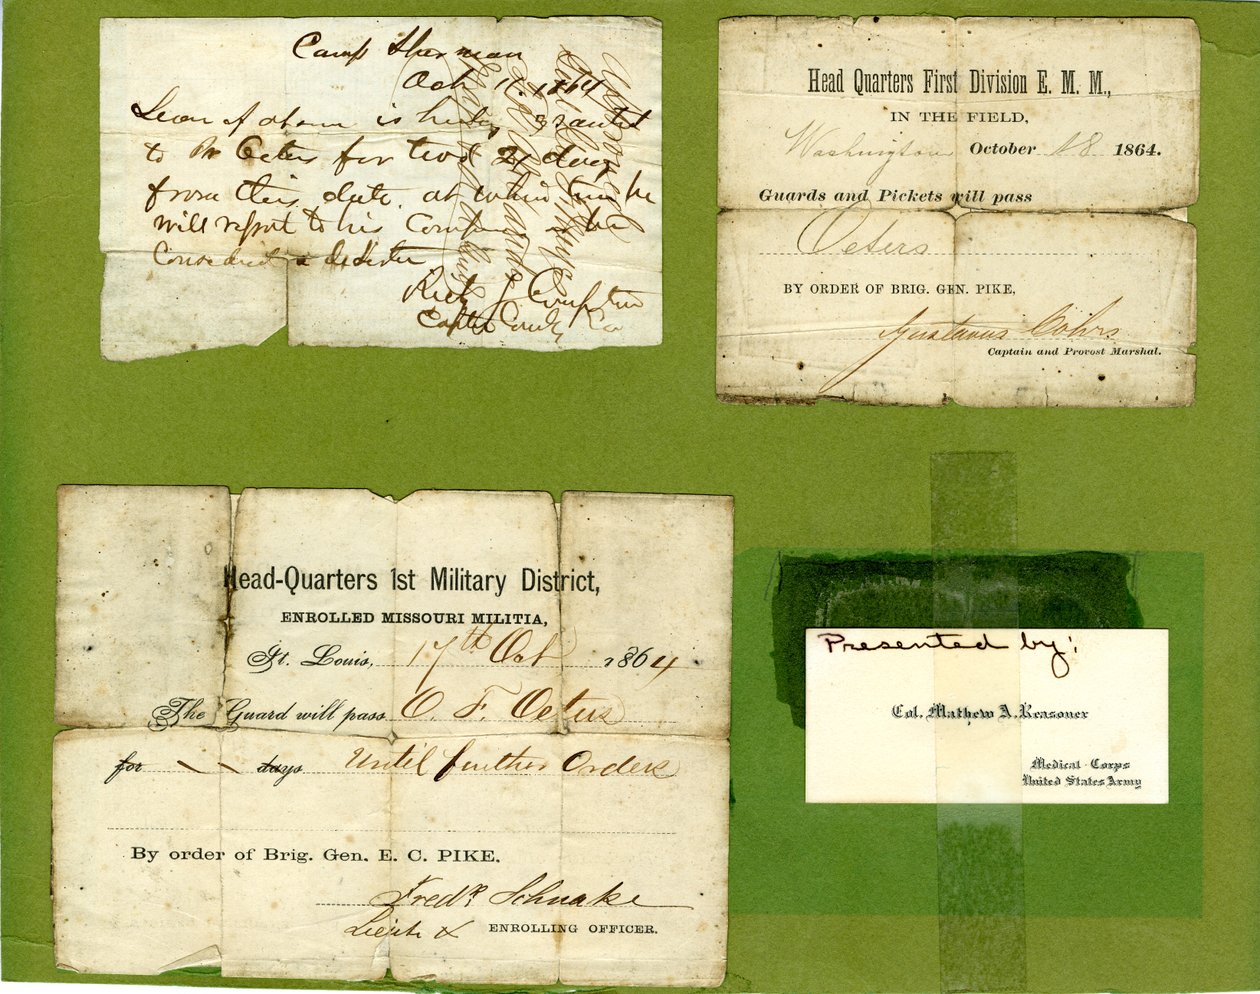 Camp Sherman
Oct 11. 1864
Leave of absence is hereby granted
to Mr Oeters for two 2 days
from this date. at which time he
will report to his Company or be
Considered a deserter
Rich J Compton
Capt
Head Quarters First Division E. M. M.,
IN THE FIELD,
Washington October 18 1864.
Guards and Pickets will pass
Oeters
BY ORDER OF BRIG. GEN. PIKE,
Gustavus Cohrs
Captain and Provost Marshal.
Head-Quarters 1st Military District,
ENROLLED MISSOURI MILITIA,
St. Louis, 17th Oct 1864
The Guard will pass O. F. Oeters
for — — days Until further Orders
By order of Brig. Gen. E. C. PIKE.
Fredk. Schnake
Lieut & ENROLLING OFFICER.
Presented by:
Col. Mathew A. Reasoner
Medical Corps
United States Army